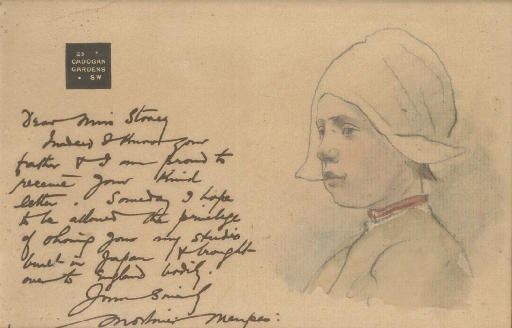 25 •
CADOGAN
GARDENS
• SW
Dear Miss Stoney
Indeed I know your
father & I am proud to
receive your kind
letter. Someday I hope
to be allowed the privilege
of showing your my studio
built in Japan & brought
over to England bodily
Yours Sincely
Mortimer Menpes: